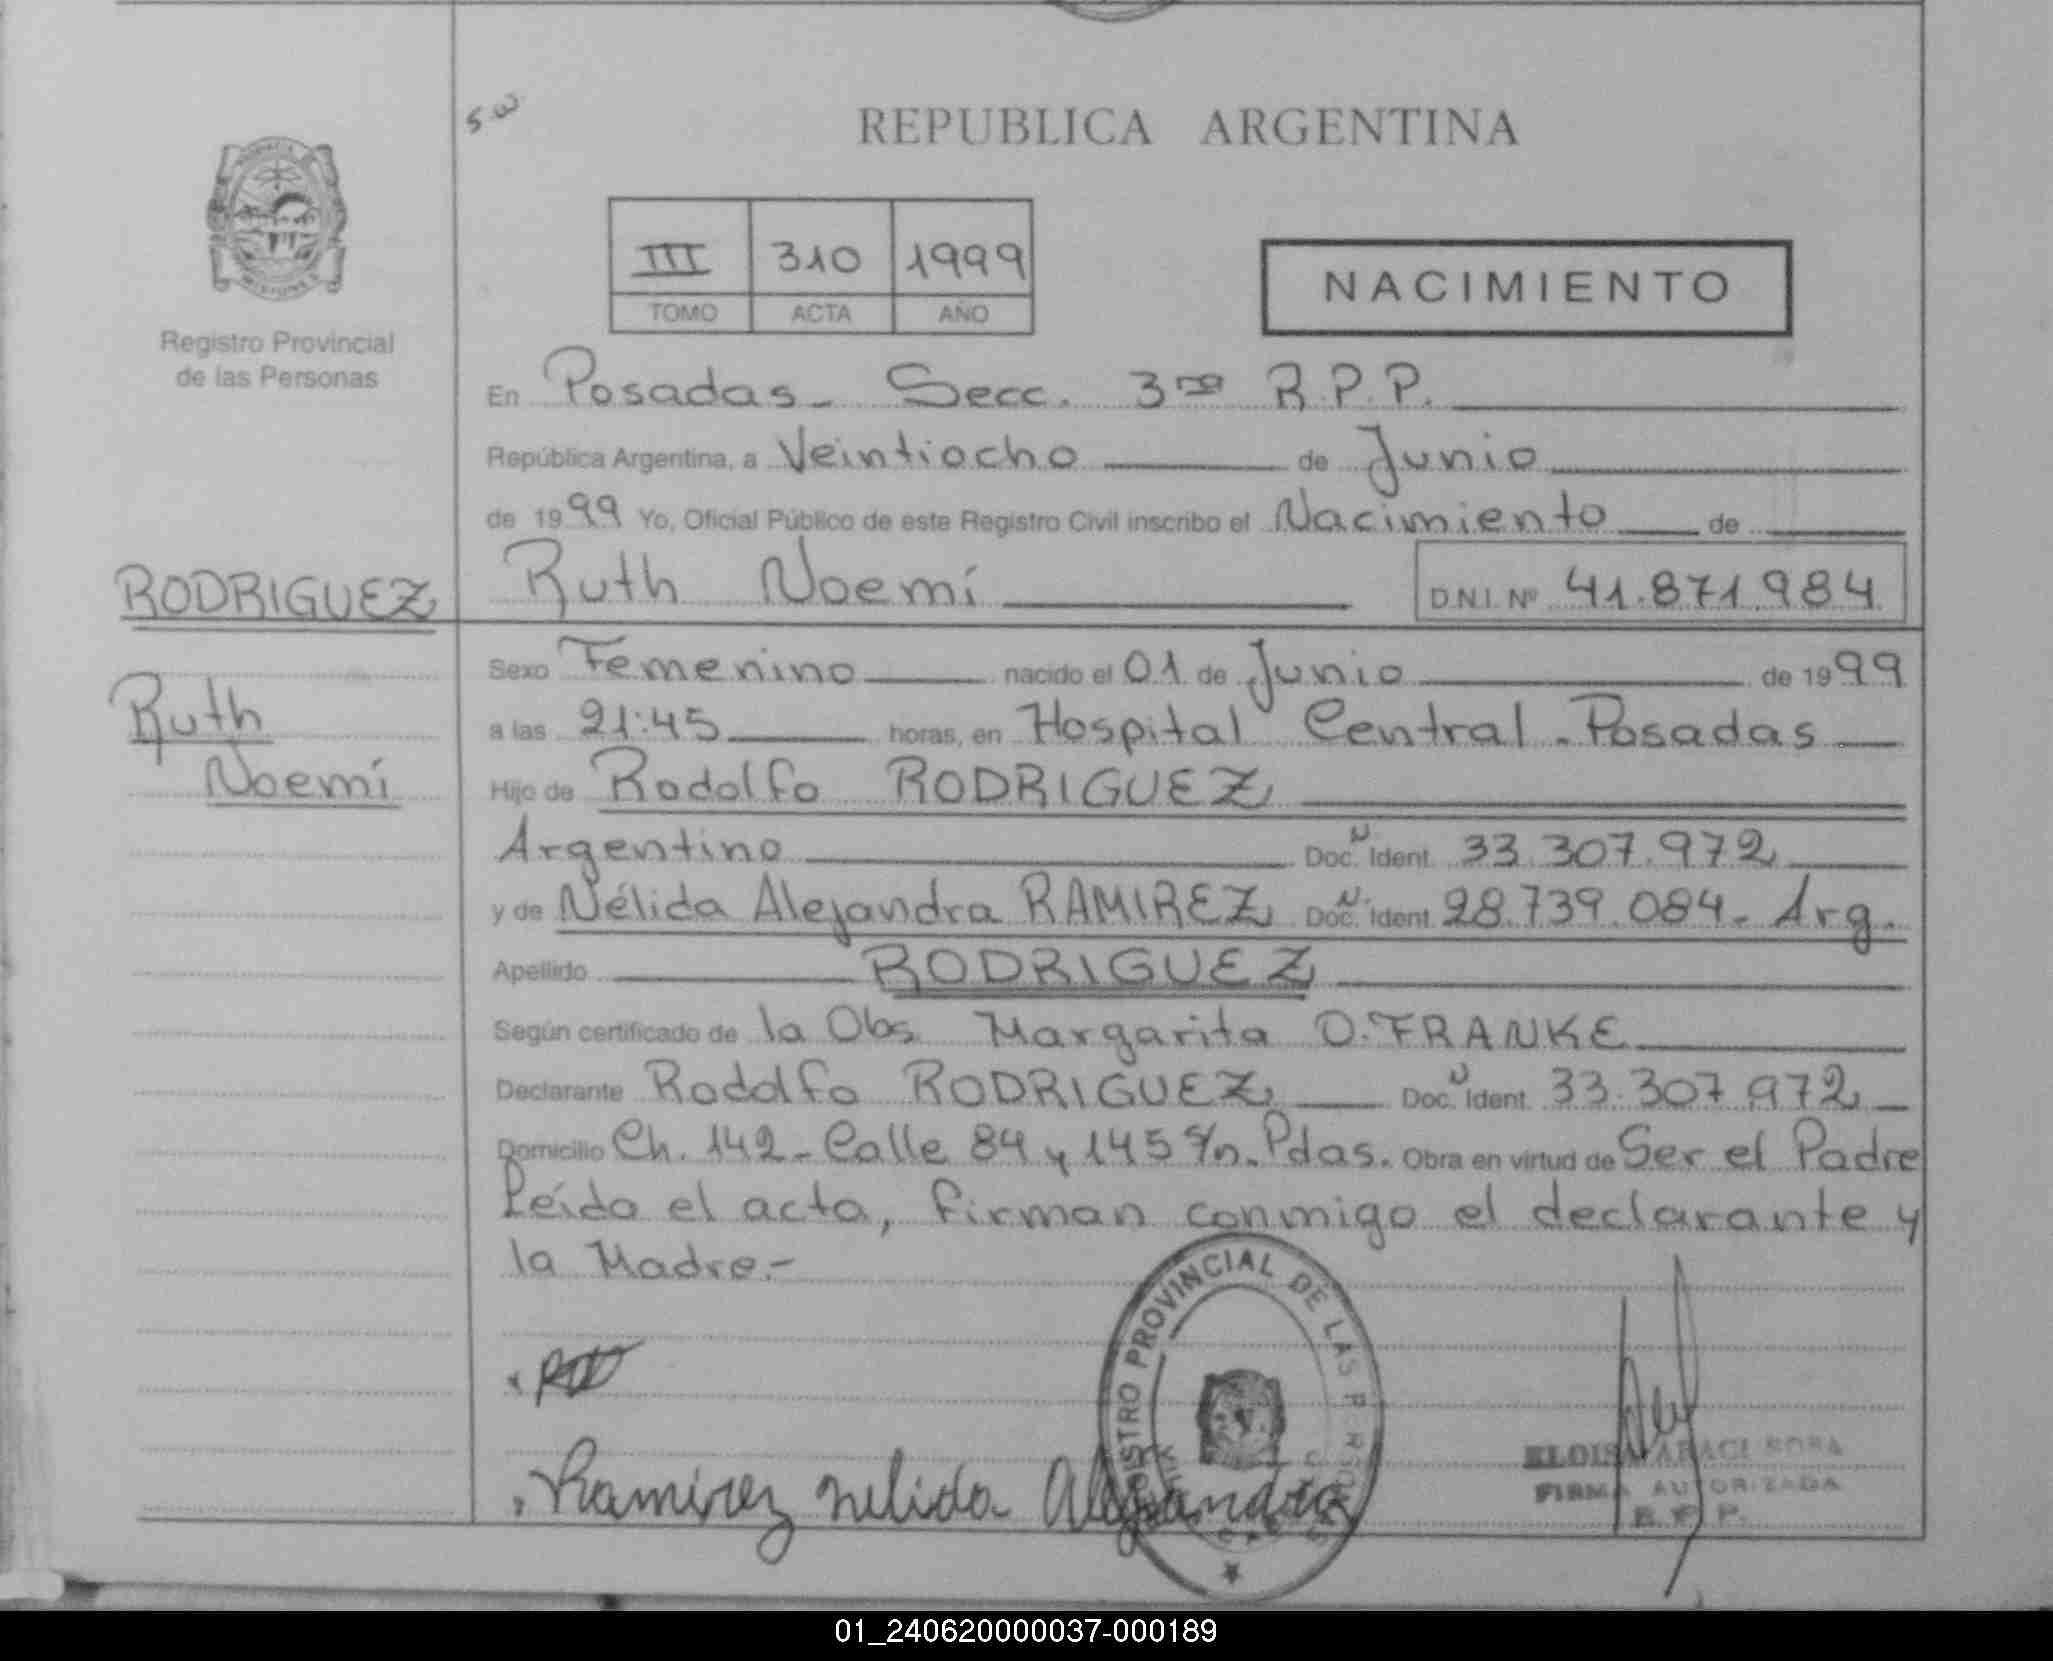 S.W
REPUBLICA ARGENTINA
III 310 1999
TOMO ACTA AÑO
NACIMIENTO
Registro Provincial
de las Personas
En Posadas - Secc. 3ra R.P.P.
República Argentina, a Veintiocho de Junio
de 1999 Yo, Oficial Público de este Registro Civil inscribo el Nacimiento de
RODRIGUEZ Ruth Noemí D.N.I. Nº 41.871.984
Ruth
Noemí
Sexo Femenino nacido el 01 de Junio de 1999
a las 21:45 horas, en Hospital Central - Posadas
Hijo de Rodolfo RODRIGUEZ
Argentino Doc. N Ident. 33.307.972
y de Nélida Alejandra RAMIREZ Doc. N Ident. 28.739.084 - Arg.
Apellido RODRIGUEZ
Según certificado de la Obs. Margarita O. FRANKE
Declarante Rodolfo RODRIGUEZ Doc. N Ident. 33.307.972
Domicilio Ch. 142 - Calle 84 y 145 s/n. Pdas. Obra en virtud de Ser el Padre
Leído el acta, firman conmigo el declarante y
la Madre.-
REGISTRO PROVINCIAL DE LAS PERSONAS
Ramirez nelida Alejandra
ELOISA ARACI SOSA
FIRMA AUTORIZADA
R. P. P.
01_240620000037-000189